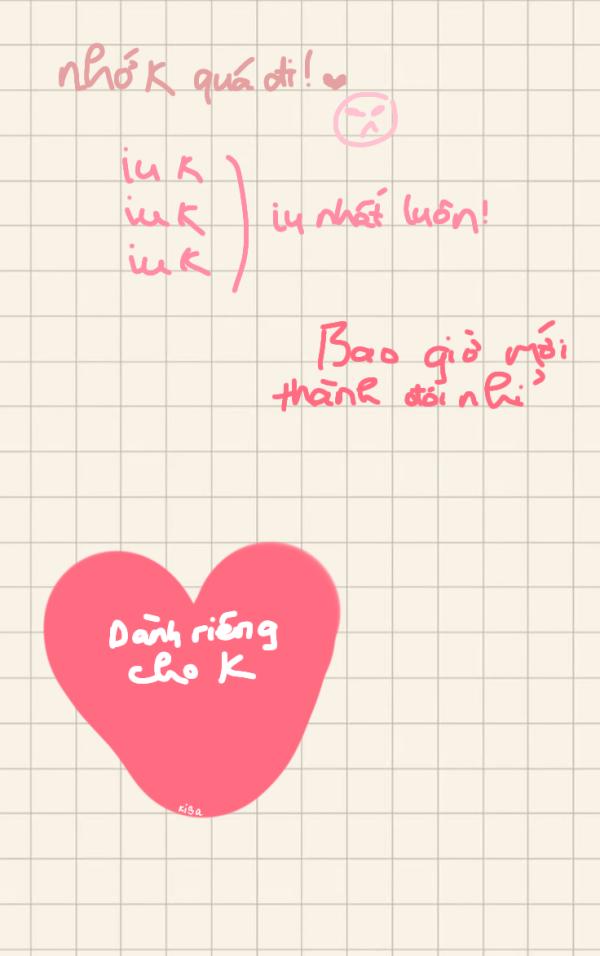 nhớ K quá đi!
iu K
iu K
iu K
iu nhất luôn!
Bao giờ mới
thành đôi nhỉ
Dành riêng
cho K
KiBa